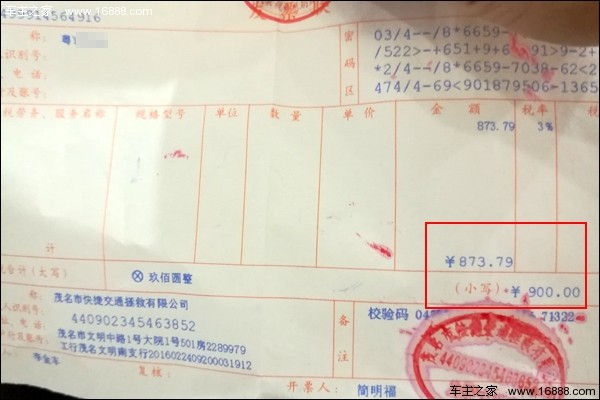 车主之家
www.16888.com
4564916
03/4--/8*6659-
密码区
/522>-+651+9+6
91>9-2+
*2/4--/8*6659-7038-62<2
474/4-69<901879506-1365
粤
人识别号:
电话:
行及账号:
税劳务、服务名称 规格型号 单位 数量 单价 金额 税率 税
873.79 3%
计
¥873.79
合计(大写) ⊗玖佰圆整 (小写) ¥900.00
茂名市快捷交通拯救有限公司
440902345463852
茂名市文明中路1号大院1号501房2289979
工行茂名文明南支行2016022409200031912
人识别号:
行及账号:
备注
校验码 04
71322
复核:
开票人: 简明福
车主之家 www.16888.com